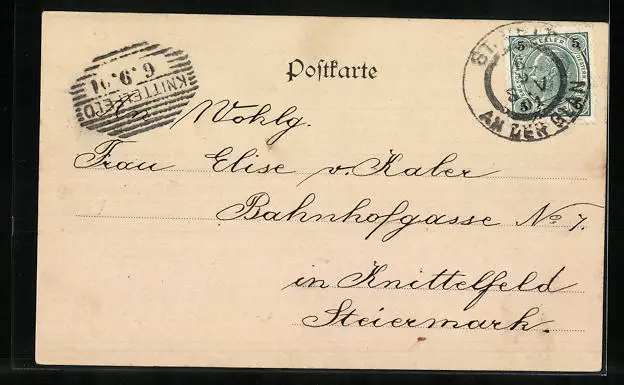 Postkarte
KNITTELFELD
6.9.01
ST. VEIT
AN DER GLAN
5 HELLER 5
An Wohlg.
Frau Elise v. Kaler
Bahnhofgasse No 7.
in Knittelfeld
Steiermark.